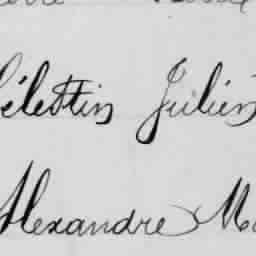 Célestin Julien
Alexandre Ma